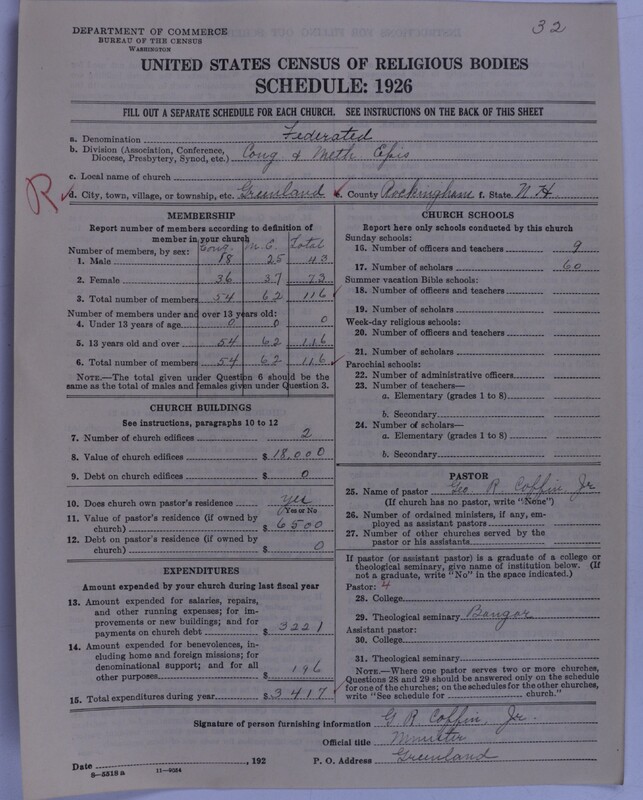 32
DEPARTMENT OF COMMERCE
BUREAU OF THE CENSUS
WASHINGTON
UNITED STATES CENSUS OF RELIGIOUS BODIES
SCHEDULE: 1926
FILL OUT A SEPARATE SCHEDULE FOR EACH CHURCH. SEE INSTRUCTIONS ON THE BACK OF THIS SHEET
a. Denomination Federated
b. Division (Association, Conference,
Diocese, Presbytery, Synod, etc.) Cong & Meth. Epis
c. Local name of church
R
d. City, town, village, or township, etc. Greenland e. County Rockingham f. State N.H
MEMBERSHIP
Report number of members according to definition of
member in your church
Number of members, by sex: Cong. M.E. Total
1. Male 18 25 43
2. Female 36 37 73
3. Total number of members 54 62 116
Number of members under and over 13 years old:
4. Under 13 years of age 0 0 0
5. 13 years old and over 54 62 116
6. Total number of members 54 62 116
NOTE.—The total given under Question 6 should be the
same as the total of males and females given under Question 3.
CHURCH BUILDINGS
See instructions, paragraphs 10 to 12
7. Number of church edifices 2
8. Value of church edifices $ 18,000
9. Debt on church edifices $ 0
10. Does church own pastor's residence yes
Yes or No
11. Value of pastor's residence (if owned by
church) $ 6500
12. Debt on pastor's residence (if owned by
church) $ 0
EXPENDITURES
Amount expended by your church during last fiscal year
13. Amount expended for salaries, repairs,
and other running expenses; for im-
provements or new buildings; and for
payments on church debt $ 3221
14. Amount expended for benevolences, in-
cluding home and foreign missions; for
denominational support; and for all
other purposes $ 196
15. Total expenditures during year $ 3417
CHURCH SCHOOLS
Report here only schools conducted by this church
Sunday schools:
16. Number of officers and teachers 9
17. Number of scholars 60
Summer vacation Bible schools:
18. Number of officers and teachers
19. Number of scholars
Week-day religious schools:
20. Number of officers and teachers
21. Number of scholars
Parochial schools:
22. Number of administrative officers
23. Number of teachers—
a. Elementary (grades 1 to 8)
b. Secondary
24. Number of scholars—
a. Elementary (grades 1 to 8)
b. Secondary
PASTOR
25. Name of pastor Geo R Coffin Jr
(If church has no pastor, write "None")
26. Number of ordained ministers, if any, em-
ployed as assistant pastors
27. Number of other churches served by the
pastor or his assistants
If pastor (or assistant pastor) is a graduate of a college or
theological seminary, give name of institution below. (If
not a graduate, write "No" in the space indicated.)
Pastor: 4
28. College
29. Theological seminary Bangor
Assistant pastor:
30. College
31. Theological seminary
NOTE.—Where one pastor serves two or more churches,
Questions 28 and 29 should be answered only on the schedule
for one of the churches; on the schedules for the other churches,
write "See schedule for church."
Signature of person furnishing information G R Coffin, Jr.
Official title Minister
Date , 192 P. O. Address Greenland
8-5318 a 11-9584